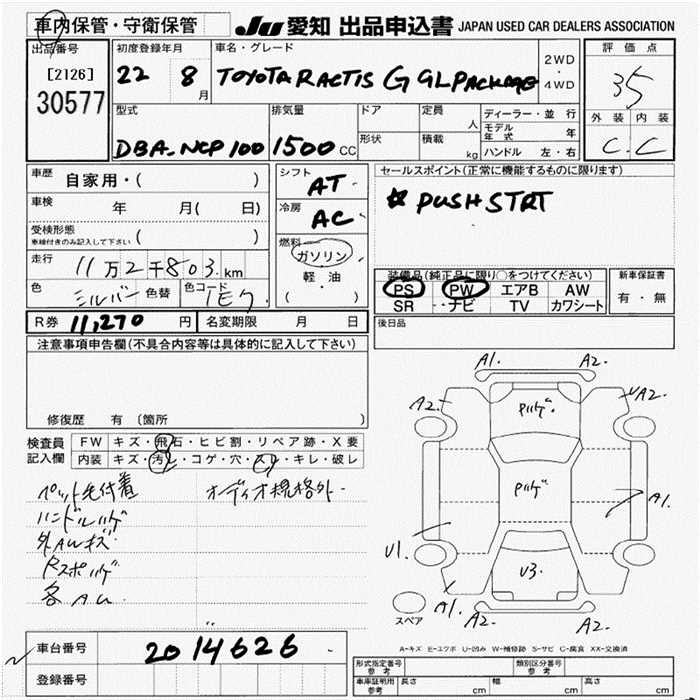 車内保管・守衛保管
JU 愛知 出品申込書 JAPAN USED CAR DEALERS ASSOCIATION
出品番号
[2126]
30577
初度登録年月
22 8月
車名・グレード
TOYOTA RACTIS G GLPACKAGE
2WD
・
4WD
評価点
35
外装 内装
C. C
型式
DBA-NCP100
排気量
1500CC
ドア
形状
定員
人
積載
kg
ディーラー・並行
モデル年式 年
ハンドル 左・右
車歴
自家用・( )
車検 年 月( 日)
受検形態 ( )
車検付きのみ記入して下さい
走行
11万2千803km
色
シルバー 色替
色コード
1E7
シフト
AT
冷房
AC
燃料
ガソリン
・
軽油
( )
セールスポイント(正常に機能するものに限ります)
☆ PUSH STRT
装備品(純正品に限り○をつけてください)
PS PW エアB AW
SR ナビ TV カワシート
新車保証書
有・無
R券 11,270 円 名変期限 月 日
後日品
注意事項申告欄(不具合内容等は具体的に記入して下さい)
修復歴 有 〔箇所 〕
検査員
記入欄
FW キズ・飛石・ヒビ割・リペア跡・X要
内装 キズ・汚レ・コゲ・穴・スレ・キレ・破レ
ペット毛付着 オーディオ規格外
ハンドルハゲ
外AWキズ
Rスポハゲ
各AW
A1. A2.
A2. A2.
ハゲ
ハゲ
A1.
U1.
U3.
A1. A2. A2.
スペア
A-キズ E-エクボ U-凹み W-補修跡 S-サビ C-腐食 XX-交換済
車台番号 2014626
登録番号
形式指定番号
参考
類別区分番号
参考
車庫証明用
参考
長さ cm 幅 cm 高さ cm